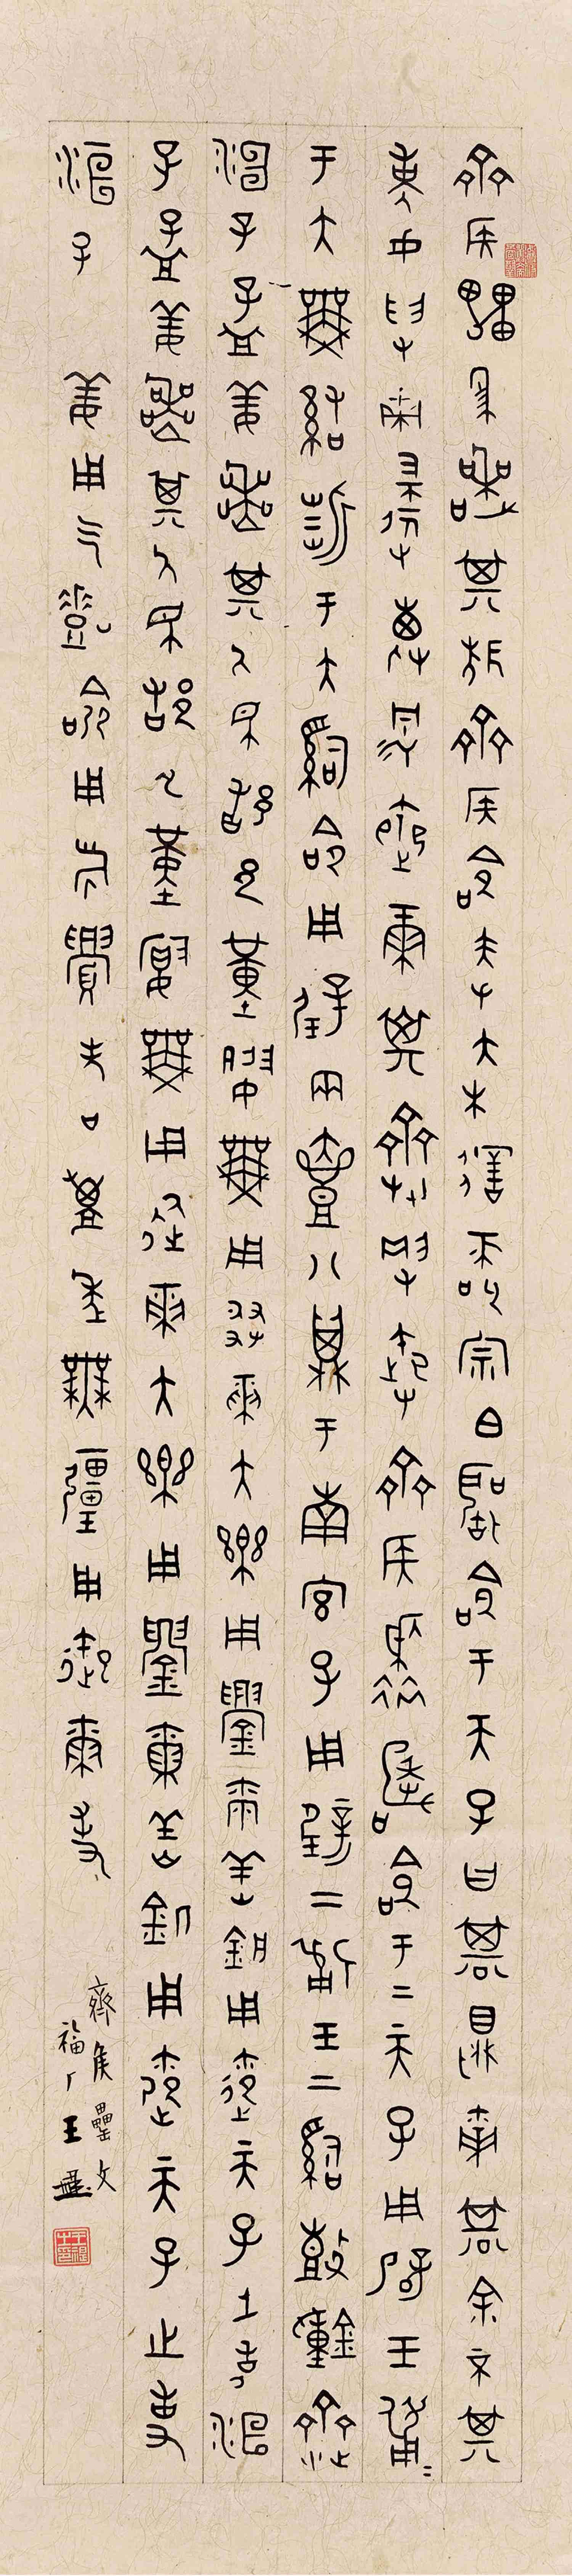 齊侯雷聿喪其齊侯命大宗白聽命于天子曰期則爾期余不其
事女受遄傳御爾其齊受御齊侯拜嘉命于二天子用璧玉備
于大無司誓于大司命用璧兩壺八鼎于南宮子用璧二備玉二司鼓鐘齊
洹子孟姜喪其人民都邑堇宴無用從爾大樂用鑄爾羞鈃用御天子之事洹
子孟姜喪其人民都邑堇宴無用從爾大樂用鑄爾羞鈃用御天子之事
洹子姜用气嘉命用旂眉壽萬年無疆用御爾事
齊侯罍文
福厂王禔